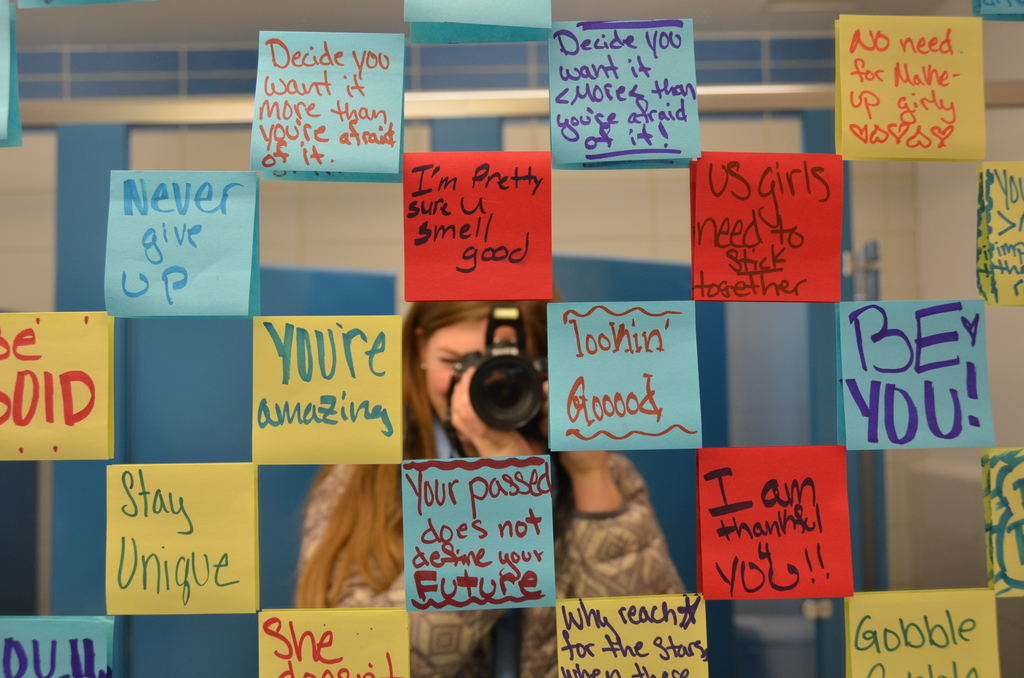 Decide you
want it
more than
you're afraid
of it.
Decide you
want it
<More< than
you're afraid
of it!
No need
for Make-
up girly
Never
give
up
I'm Pretty
sure u
smell
good
US girls
need to
stick
together
You
Be
YOU'RE
amazing
lookin'
Gooood
BE
YOU!
Stay
Unique
Your passed
does not
define your
Future
I am
thankful
you!!
She
doesn't
Why reach
for the stars
when there
Gobble
Gobble